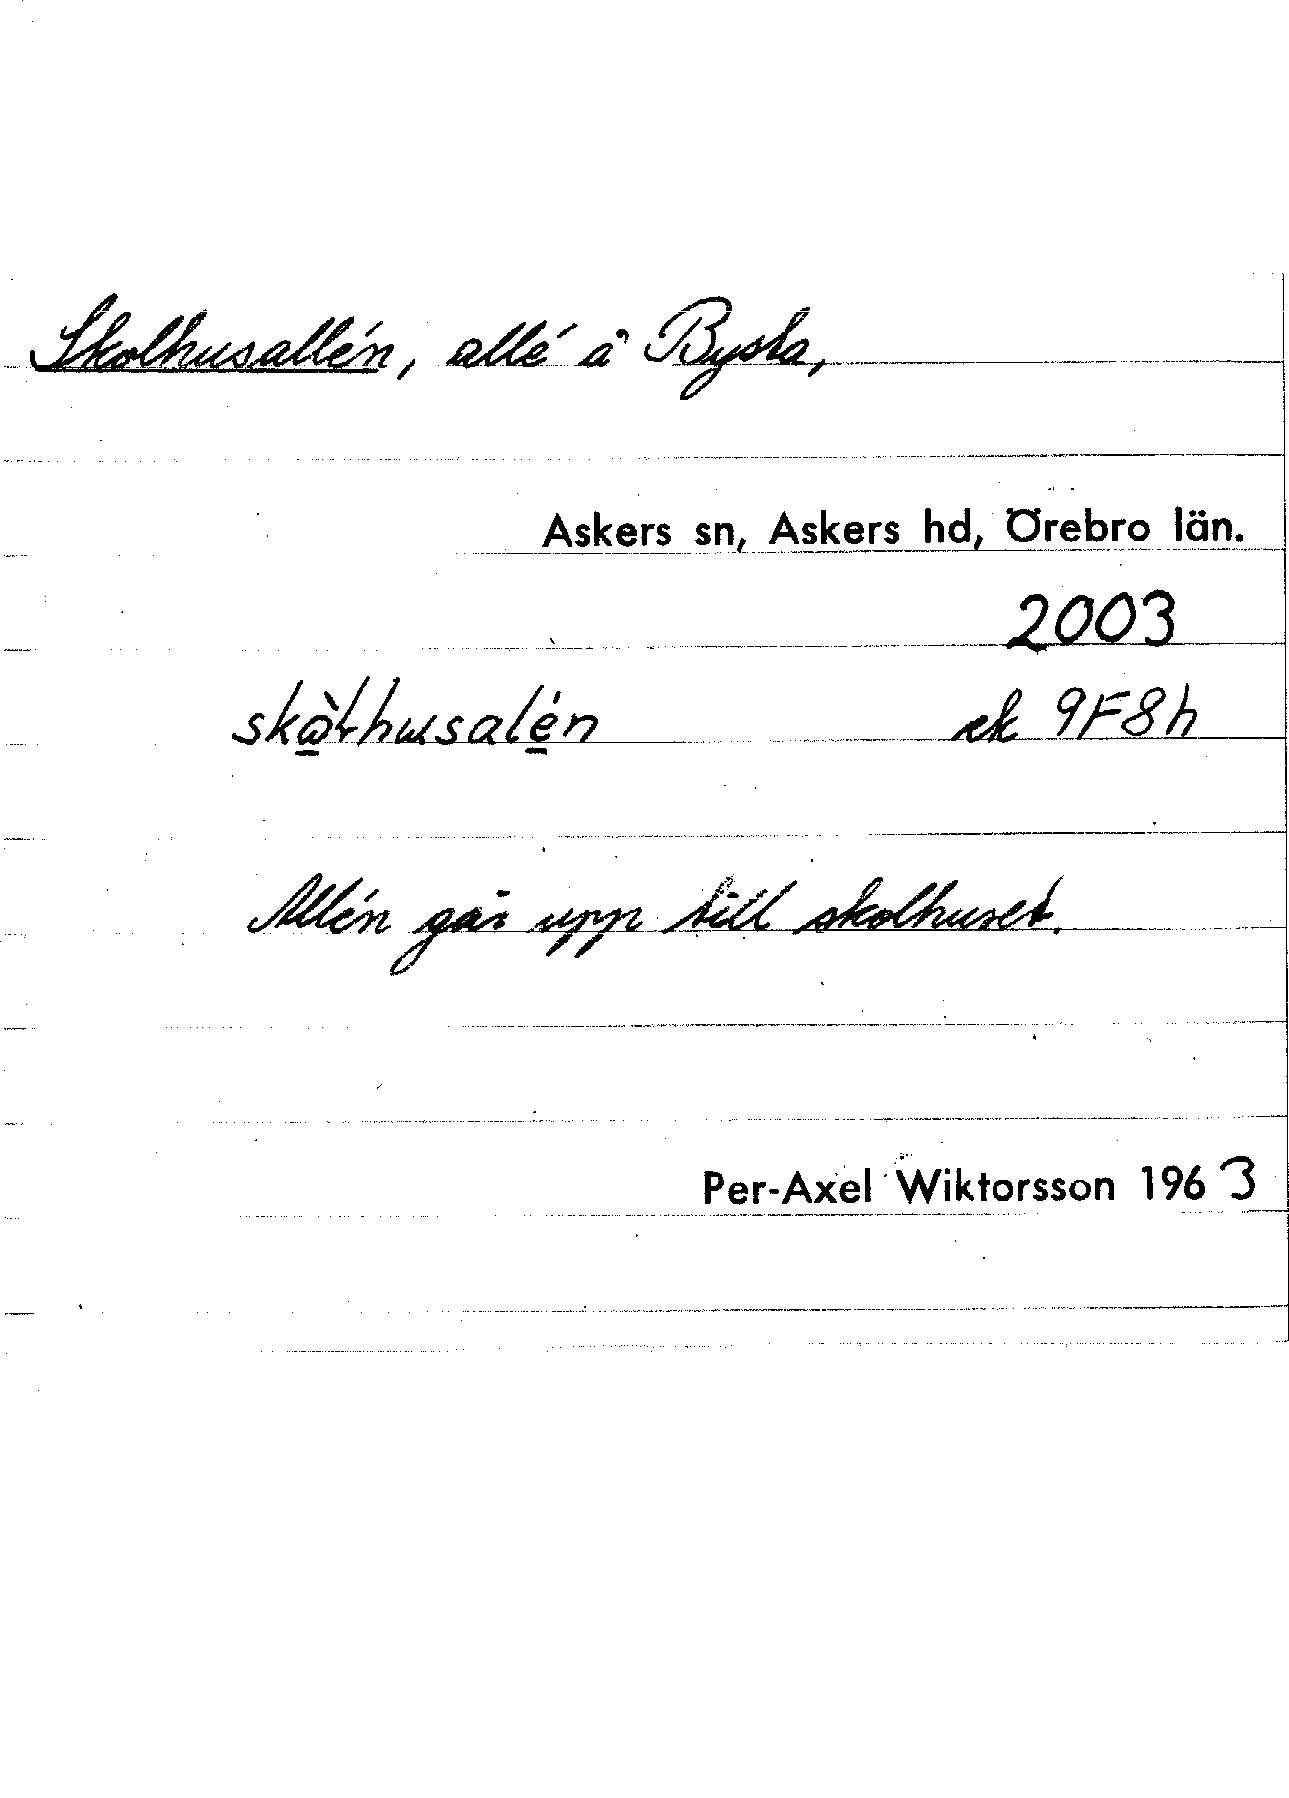 Skolhusallén, allé å Bysta,
Askers sn, Askers hd, Örebro län.
2003
skὼɫhusalén ek 9F8h
Allén går upp till skolhuset.
Per-Axel Wiktorsson 1963